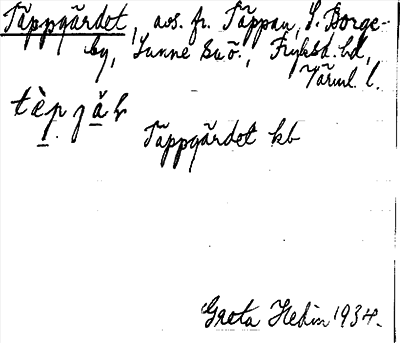 Täppgärdet, avs. fr. Täppan, S. Borge-
by, Sunne sn., Fryksd. hd,
Värml. l.
tèpjăḷ
Täppgärdet kb
Greta Hedin 1934.